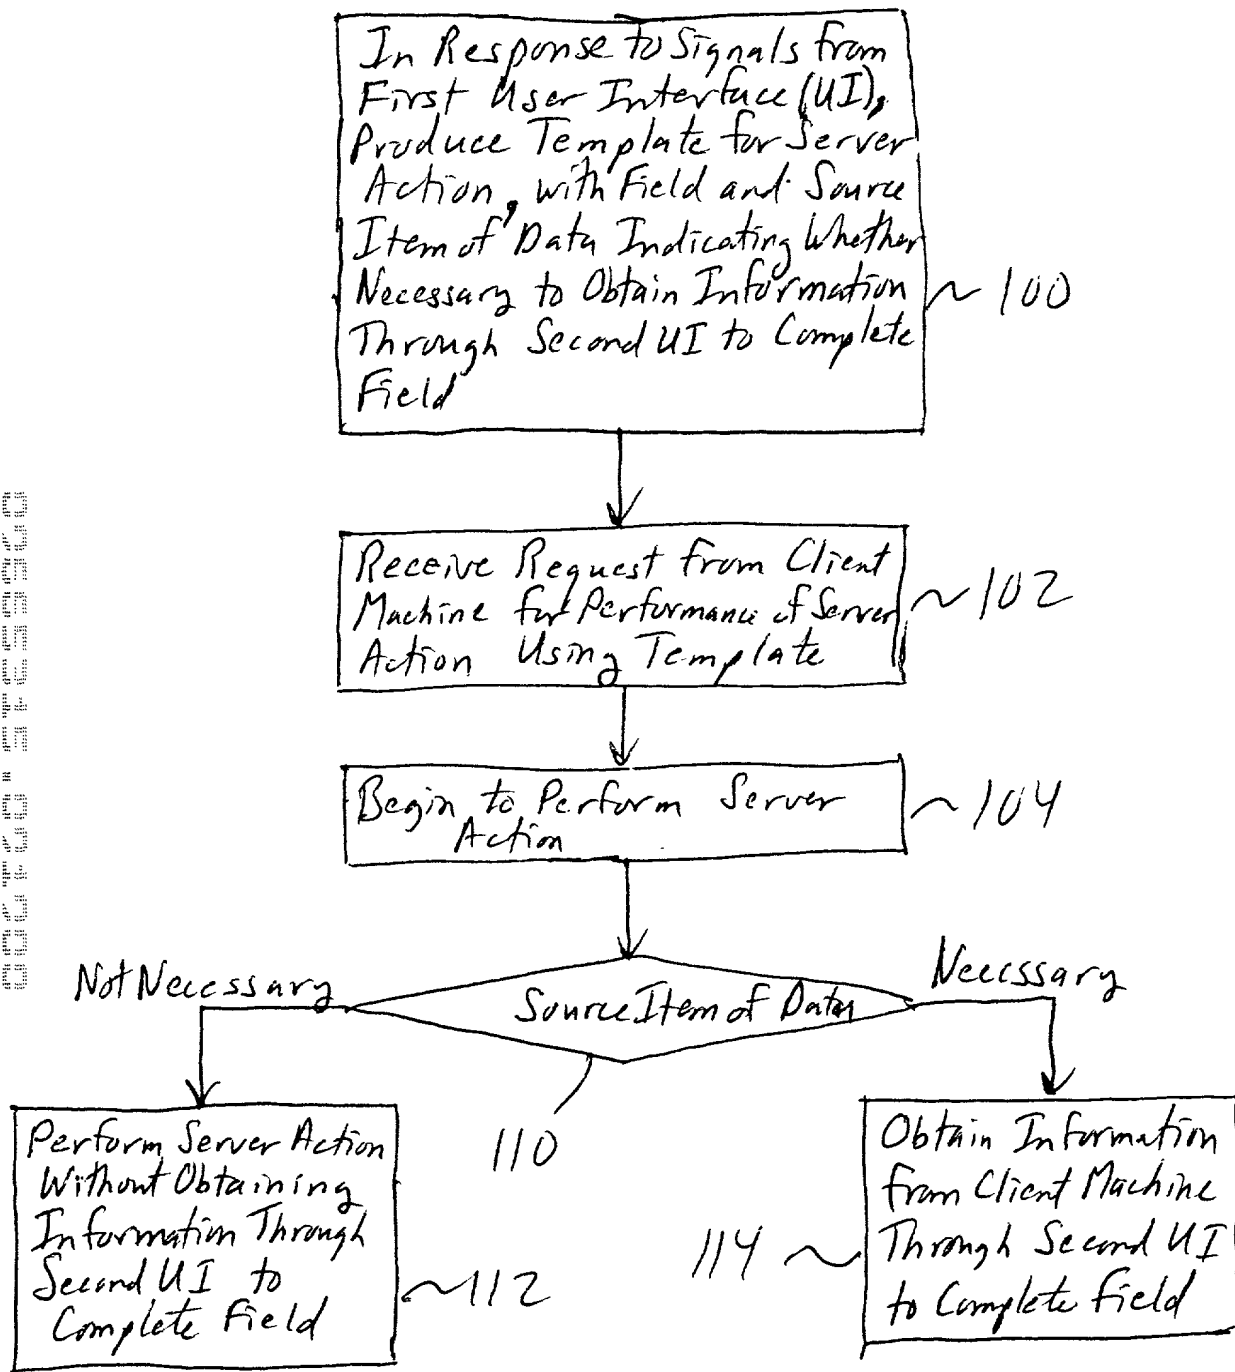 In Response to Signals from
First User Interface (UI),
Produce Template for Server
Action, with Field and Source
Item of Data Indicating Whether
Necessary to Obtain Information
Through Second UI to Complete
Field
~ 100
Receive Request from Client
Machine for Performance of Server
Action Using Template
~ 102
Begin to Perform Server
Action
~ 104
Not Necessary
Necessary
Source Item of Data
110
Perform Server Action
Without Obtaining
Information Through
Second UI to
Complete Field
~ 112
Obtain Information
from Client Machine
Through Second UI
to Complete Field
114 ~